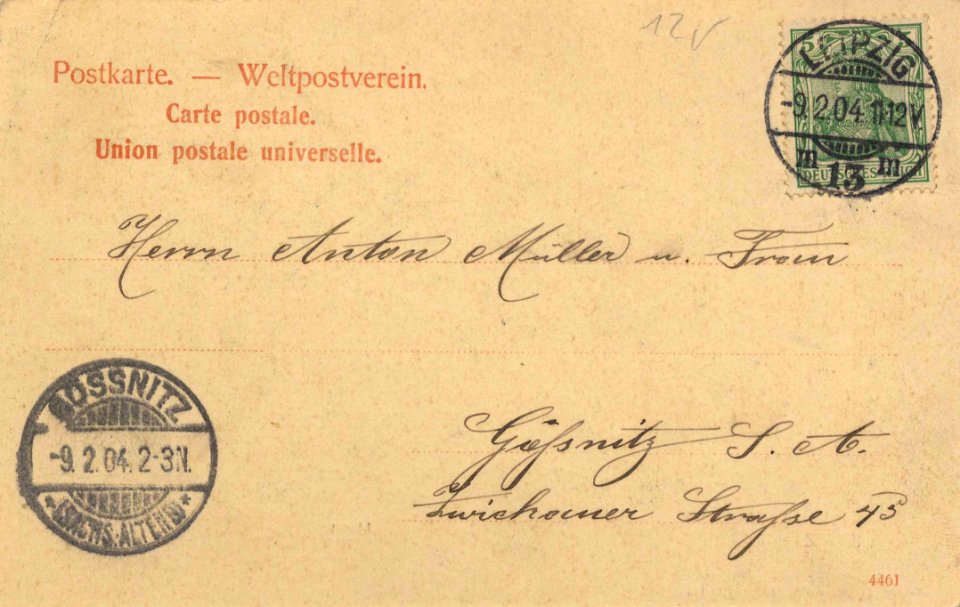 12V
Postkarte. — Weltpostverein.
Carte postale.
Union postale universelle.
LEIPZIG
-9.2.04.11-12V
m 13 m
DEUTSCHES REICH
Herrn Anton Müller u. Frau
GÖSSNITZ
-9.2.04.2-3N.
*(SACHS.-ALTENB.)*
Gößnitz S. A.
Zwickauer Straße 43
4461